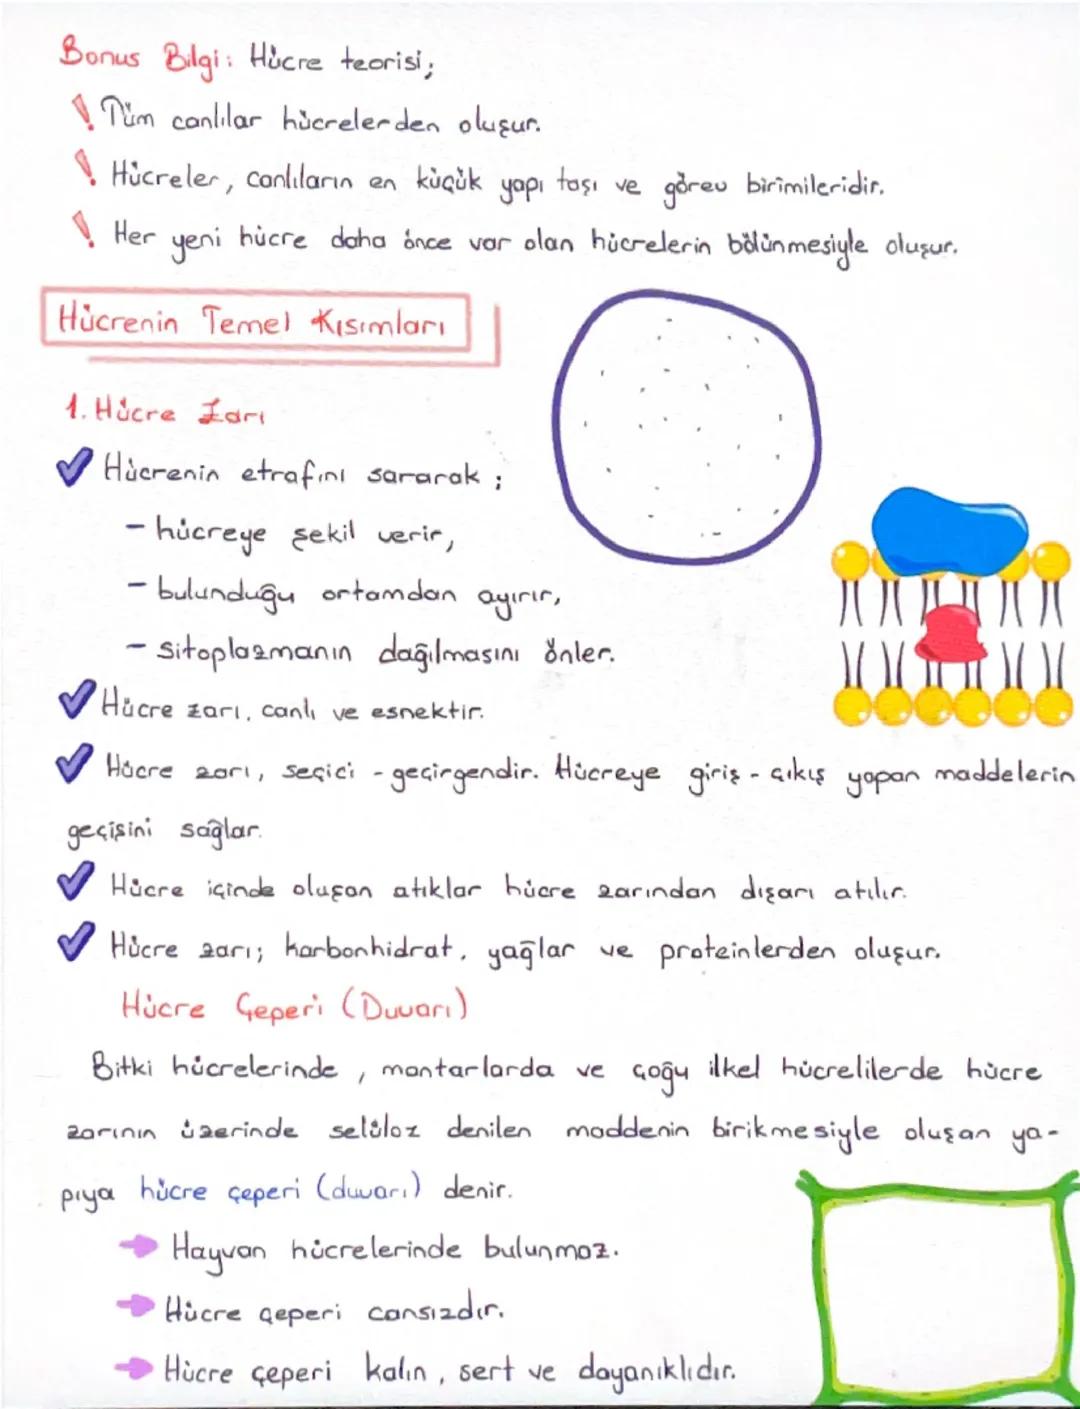 Bonus Bilgi: Hücre teorisi;
! Tüm canlılar hücrelerden oluşur.
! Hücreler, canlıların en küçük yapı taşı ve görev birimileridir.
! Her yeni hücre daha önce var olan hücrelerin bölünmesiyle oluşur.
Hücrenin Temel Kısımları
1. Hücre Zarı
✔ Hücrenin etrafını sararak ;
- hücreye şekil verir,
- bulunduğu ortamdan ayırır,
- sitoplazmanın dağılmasını önler.
✔ Hücre zarı, canlı ve esnektir.
✔ Hücre zarı, seçici - geçirgendir. Hücreye giriş - çıkış yapan maddelerin
geçişini sağlar.
✔ Hücre içinde oluşan atıklar hücre zarından dışarı atılır.
✔ Hücre zarı; karbonhidrat, yağlar ve proteinlerden oluşur.
Hücre Çeperi (Duvarı)
Bitki hücrelerinde , mantarlarda ve çoğu ilkel hücrelilerde hücre
zarının üzerinde selüloz denilen maddenin birikmesiyle oluşan ya-
pıya hücre çeperi (duvarı) denir.
→ Hayvan hücrelerinde bulunmaz.
→ Hücre çeperi cansızdır.
→ Hücre çeperi kalın, sert ve dayanıklıdır.